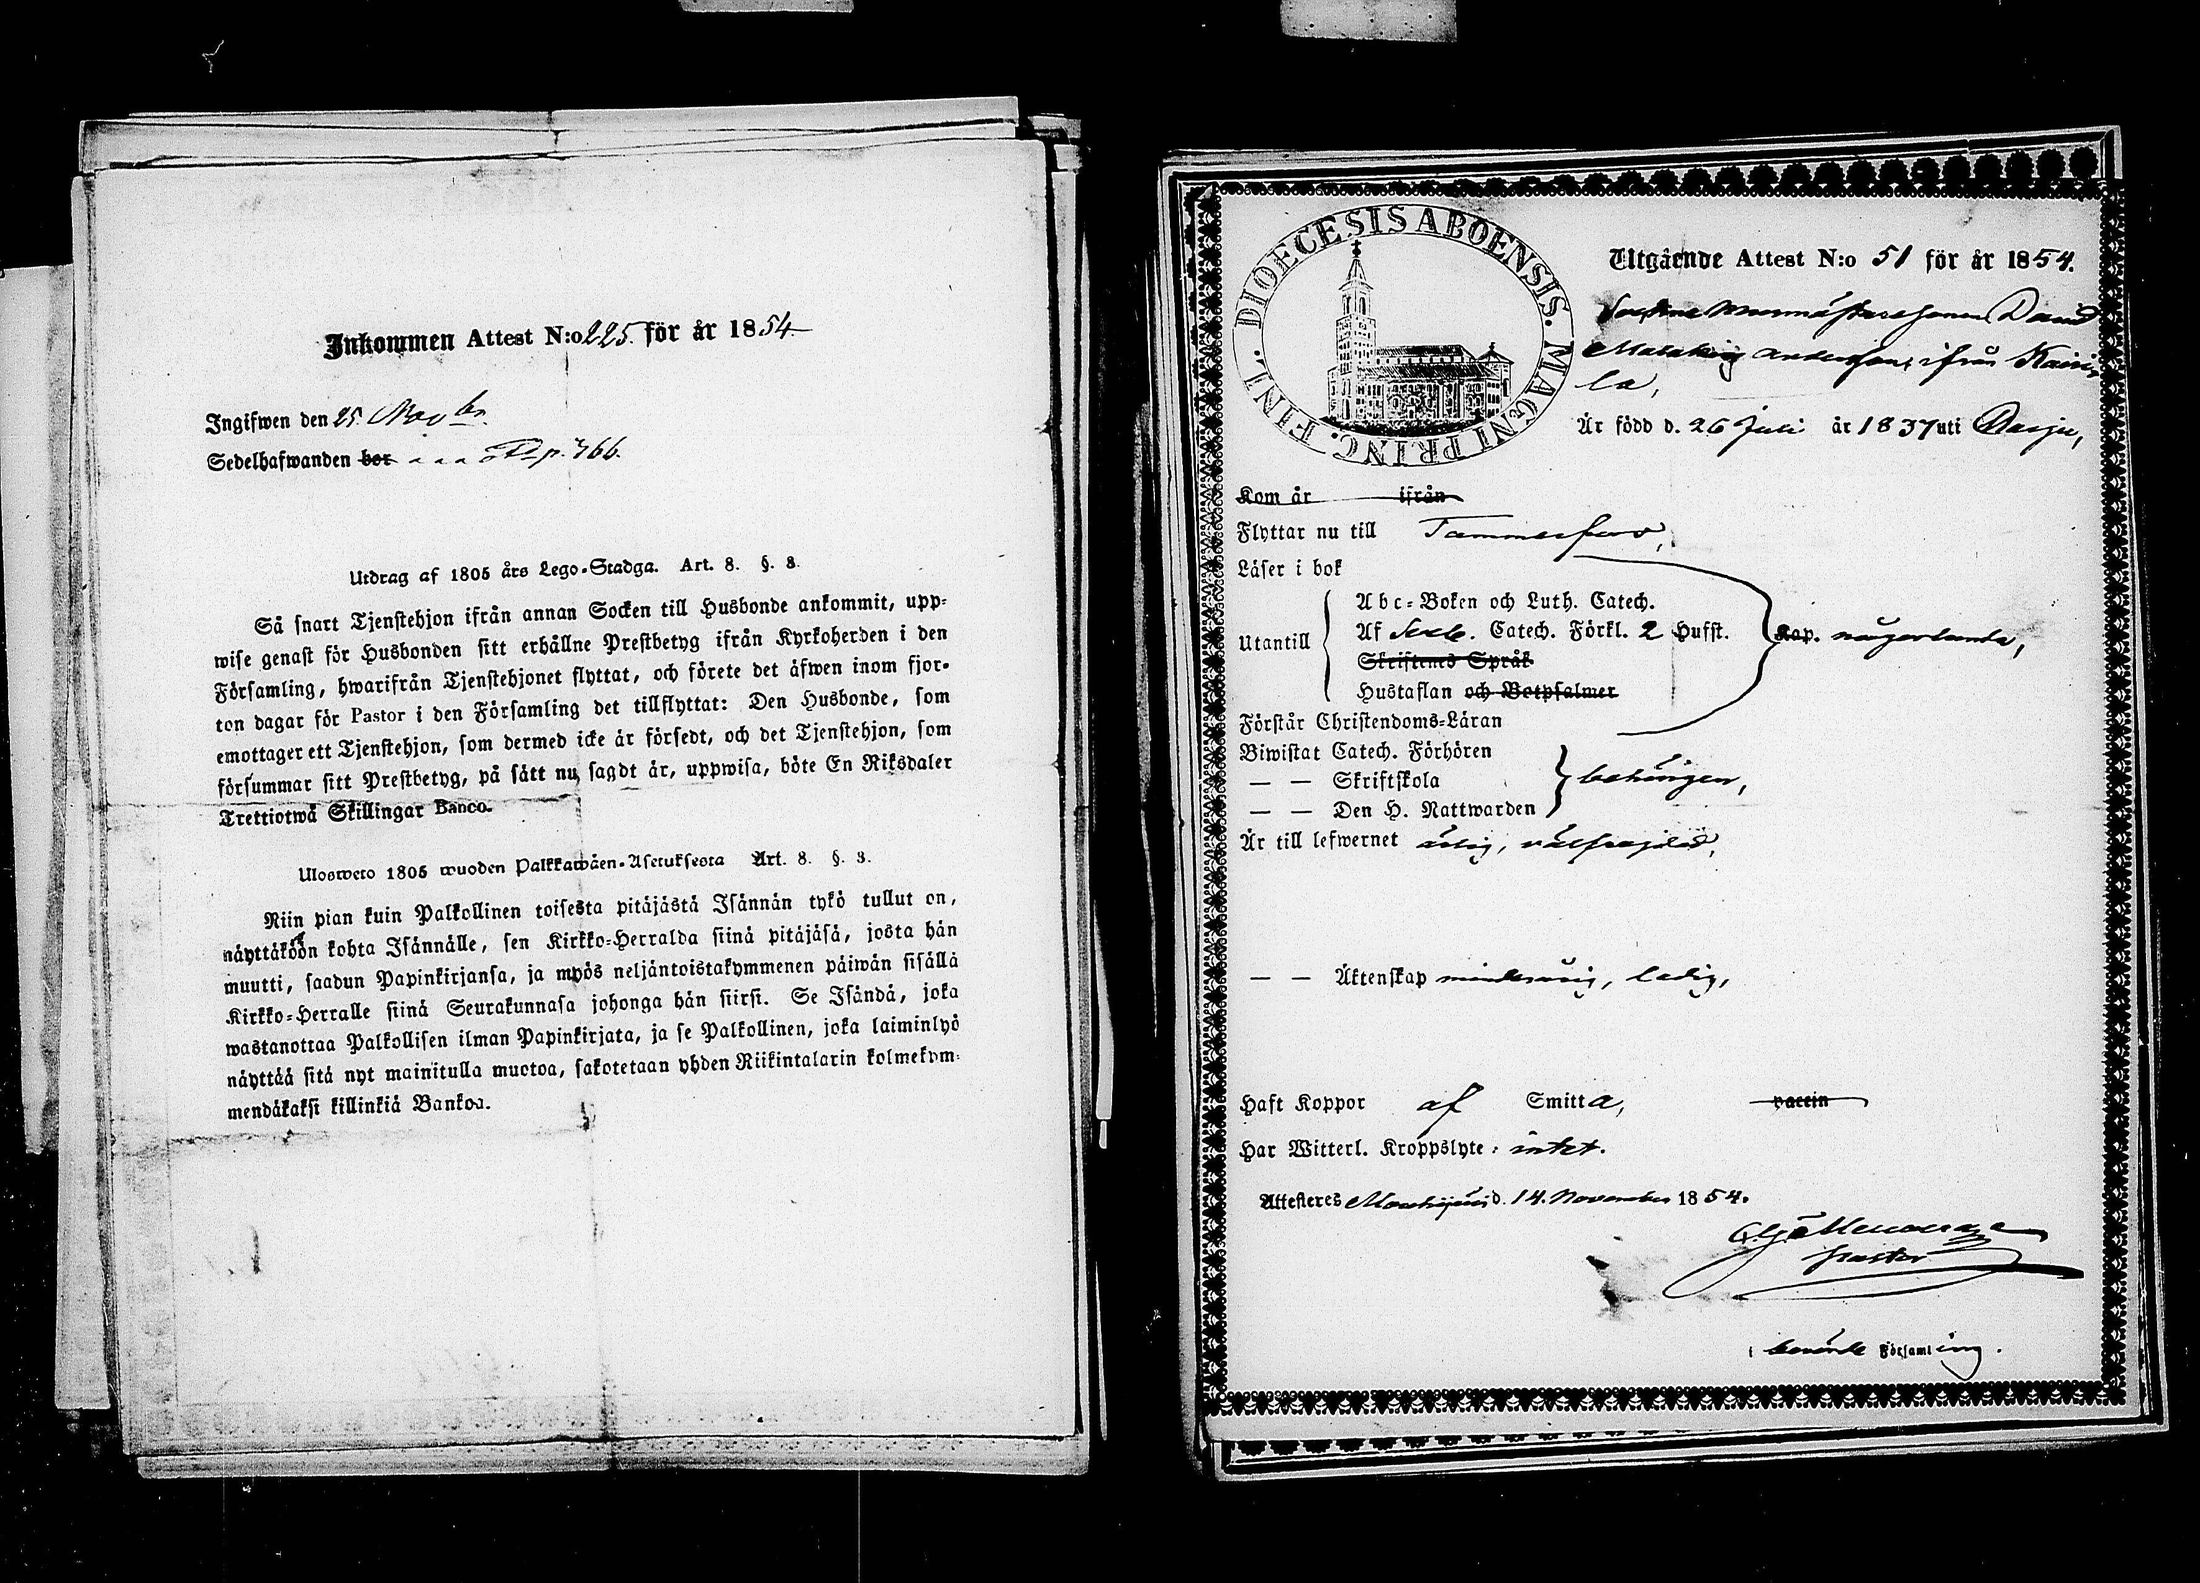 Inkommen Attest N:o 225. för år 1854
Ingifwen den 25 Novbr.
Sedelhafwanden bor p. 766.
Utdrag af 1805 års Lego-Stadga. Art. 8. §. 3.
Så snart Tjenstehjon ifrån annan Socken till Husbonde ankommit, upp-
wise genast för Husbonden sitt erhållne Prestbetyg ifrån Kyrkoherden i den
Församling, hwarifrån Tjenstehjonet flyttat, och förete det äfwen inom fjor-
ton dagar för Pastor i den Församling det tillflyttat: Den Husbonde, som
emottager ett Tjenstehjon, som dermed icke är försedt, och det Tjenstehjon, som
försummar sitt Prestbetyg, på sätt nu sagdt är, uppwisa, böte En Riksdaler
Trettiotwå Skillingar Banco.
Ulosweto 1805 wuoden Palkkawäen-Asetuksesta Art. 8. §. 3.
Niin pian kuin Palkollinen toisesta pitäjästä Isännän tykö tullut on,
näyttäköön kohta Isännälle, sen Kirkko-Herralda siinä pitäjäsä, josta hän
muutti, saadun Papinkirjansa, ja myös neljäntoistakymmenen päiwän sisällä
Kirkko-Herralle siinä Seurakunnasa johonga hän siirsi. Se Isändä, joka
wastanottaa Palkollisen ilman Papinkirjata, ja se Palkollinen, joka laiminlyö
näyttää sitä nyt mainitulla muotoa, sakotetaan yhden Riikintalarin kolmekym-
mendäkaksi killinkiä Bankoa.
DIOECESIS ABOENSIS. MAGNI PRINC. FINL.
Utgående Attest N:o 51 för år 1854.
murmästaresonen David
Andersson, ifrån Kairi-
la,
Är född d. 26 Juli år 1837 uti
Kom år ifrån
Flyttar nu till Tammerfors,
Läser i bok
Abc-Boken och Luth. Catech.
Utantill
Af Catech. Förkl. 2 Hufst.
Kap. någorlunda,
Skriftenes Språk
Hustaflan och Botpsalmer
Förstår Christendoms-Läran
Biwistat Catech. Förhören
— — Skriftskola
behörigen,
— — Den H. Nattwarden
Är till lefwernet ärlig, välfrejdad,
— — Äktenskap minderårig, ledig,
Haft Koppor af Smitta, vaccin
Har Witterl. Kroppslyte: intet.
Attesteres d. 14. November 1854.
Pastor
i Församling.